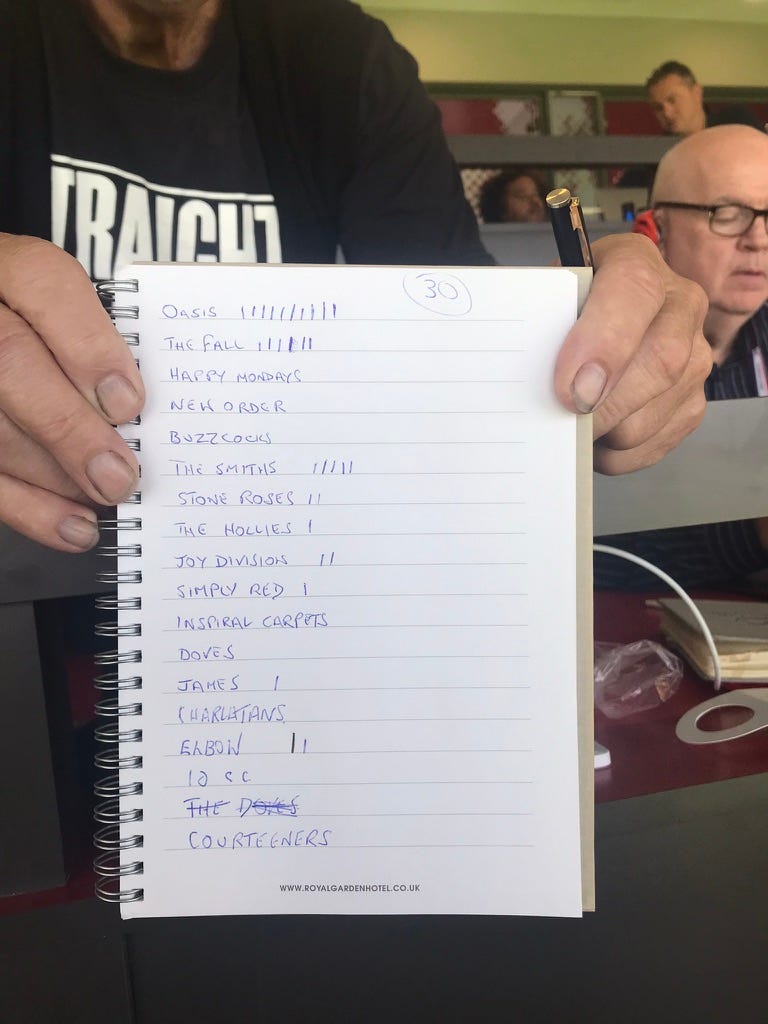 TRAIGHT
30
OASIS ||||||||||
THE FALL ||||||
HAPPY MONDAYS
NEW ORDER
BUZZCOCKS
THE SMITHS |||||
STONE ROSES ||
THE HOLLIES |
JOY DIVISION ||
SIMPLY RED |
INSPIRAL CARPETS
DOVES
JAMES |
CHARLATANS
ELBOW ||
10 CC
THE DOVES
COURTEENERS
WWW.ROYALGARDENHOTEL.CO.UK